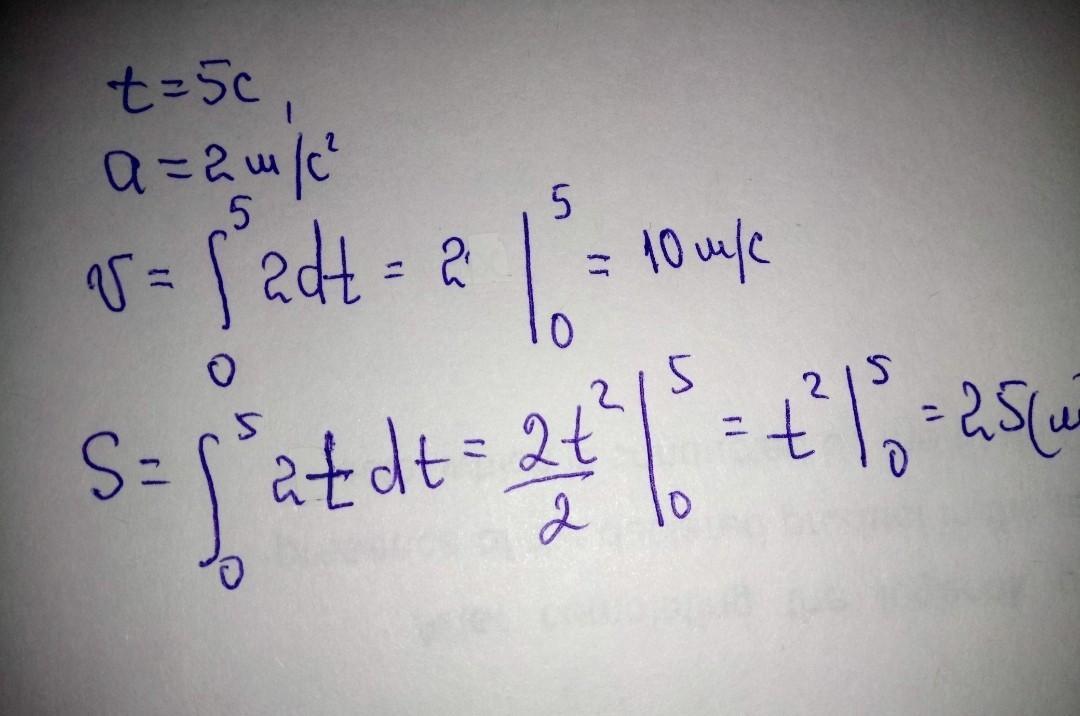 t=5c,
a=2м/c²
v=∫₀⁵ 2dt = 2 |₀⁵ = 10 м/c
S=∫₀⁵ 2t dt = 2t²/2 |₀⁵ = t² |₀⁵ = 25(м